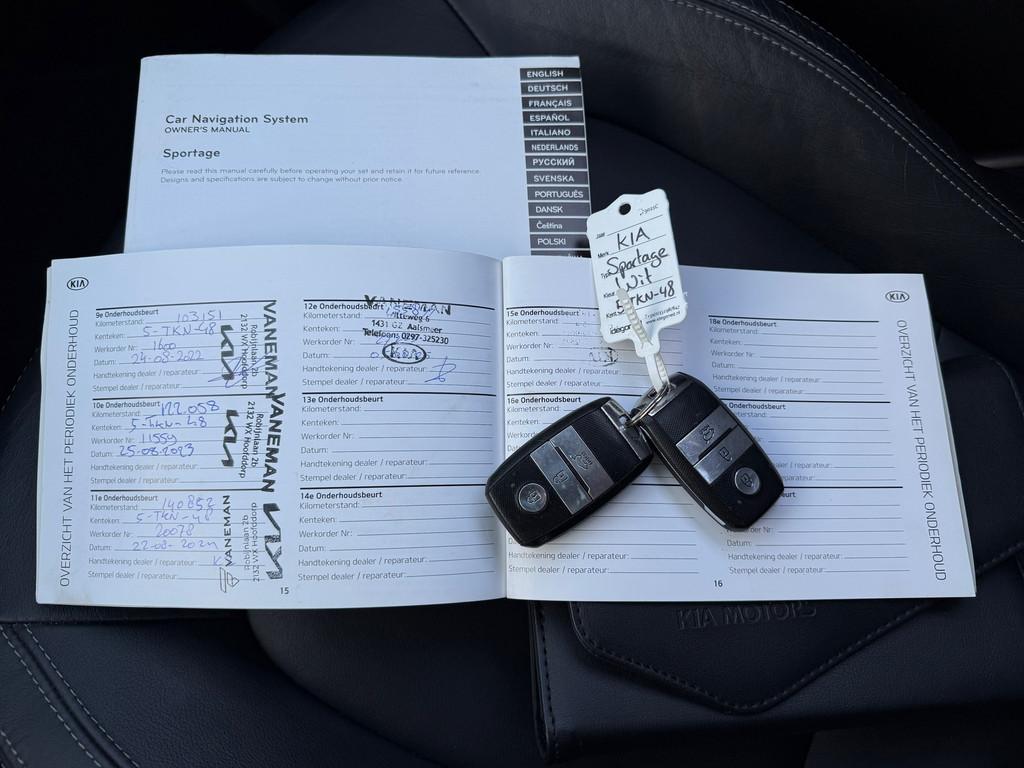 Car Navigation System
OWNER'S MANUAL
Sportage
Please read this manual carefully before operating your set and retain it for future reference.
Designs and specifications are subject to change without prior notice.
ENGLISH
DEUTSCH
FRANÇAIS
ESPAÑOL
ITALIANO
NEDERLANDS
РУССКИЙ
SVENSKA
PORTUGUÊS
DANSK
Čeština
POLSKI
Merk KIA
Type Sportage
Kleur Wit
Kent. 5-TKN-48
KIA
OVERZICHT VAN HET PERIODIEK ONDERHOUD
9e Onderhoudsbeurt
Kilometerstand: 103151
Kenteken: 5-TKN-48
Werkorder Nr: 1600
Datum: 24-08-2022
Handtekening dealer / reparateur:
Stempel dealer / reparateur:
VANEMAN
KIA
Robijnlaan 2b
2132 WX Hoofddorp
10e Onderhoudsbeurt
Kilometerstand: 122.058
Kenteken: 5-TKN-48
Werkorder Nr: 11559
Datum: 25-08-2023
Handtekening dealer / reparateur:
Stempel dealer / reparateur:
VANEMAN
KIA
Robijnlaan 2b
2132 WX Hoofddorp
11e Onderhoudsbeurt
Kilometerstand: 140852
Kenteken: 5-TKN-48
Werkorder Nr: 20078
Datum: 22-08-2024
Handtekening dealer / reparateur:
Stempel dealer / reparateur:
VANEMAN
KIA
Robijnlaan 2b
2132 WX Hoofddorp
15
12e Onderhoudsbeurt
Kilometerstand:
Kenteken:
Werkorder Nr:
Datum:
Handtekening dealer / reparateur:
Stempel dealer / reparateur:
VANEMAN
Witteweg 6
1431 GZ Aalsmeer
Telefoon: 0297-325230
KIA
13e Onderhoudsbeurt
Kilometerstand:
Kenteken:
Werkorder Nr:
Datum:
Handtekening dealer / reparateur:
Stempel dealer / reparateur:
14e Onderhoudsbeurt
Kilometerstand:
Kenteken:
Werkorder Nr:
Datum:
Handtekening dealer / reparateur:
Stempel dealer / reparateur:
15e Onderhoudsbeurt
Kilometerstand:
Kenteken:
Werkorder Nr:
Datum:
Handtekening dealer / reparateur:
Stempel dealer / reparateur:
16e Onderhoudsbeurt
Kilometerstand:
Kenteken:
Werkorder
Datum:
Handtekening dealer / reparateur:
Stempel dealer / reparateur:
16
18e Onderhoudsbeurt
Kenteken:
Werkorder Nr:
Datum:
Handtekening dealer / reparateur:
Stempel dealer / reparateur:
Onderhoudsbeurt
Datum:
Handtekening dealer / reparateur:
Stempel dealer / reparateur:
KIA
OVERZICHT VAN HET PERIODIEK ONDERHOUD
KIA MOTORS